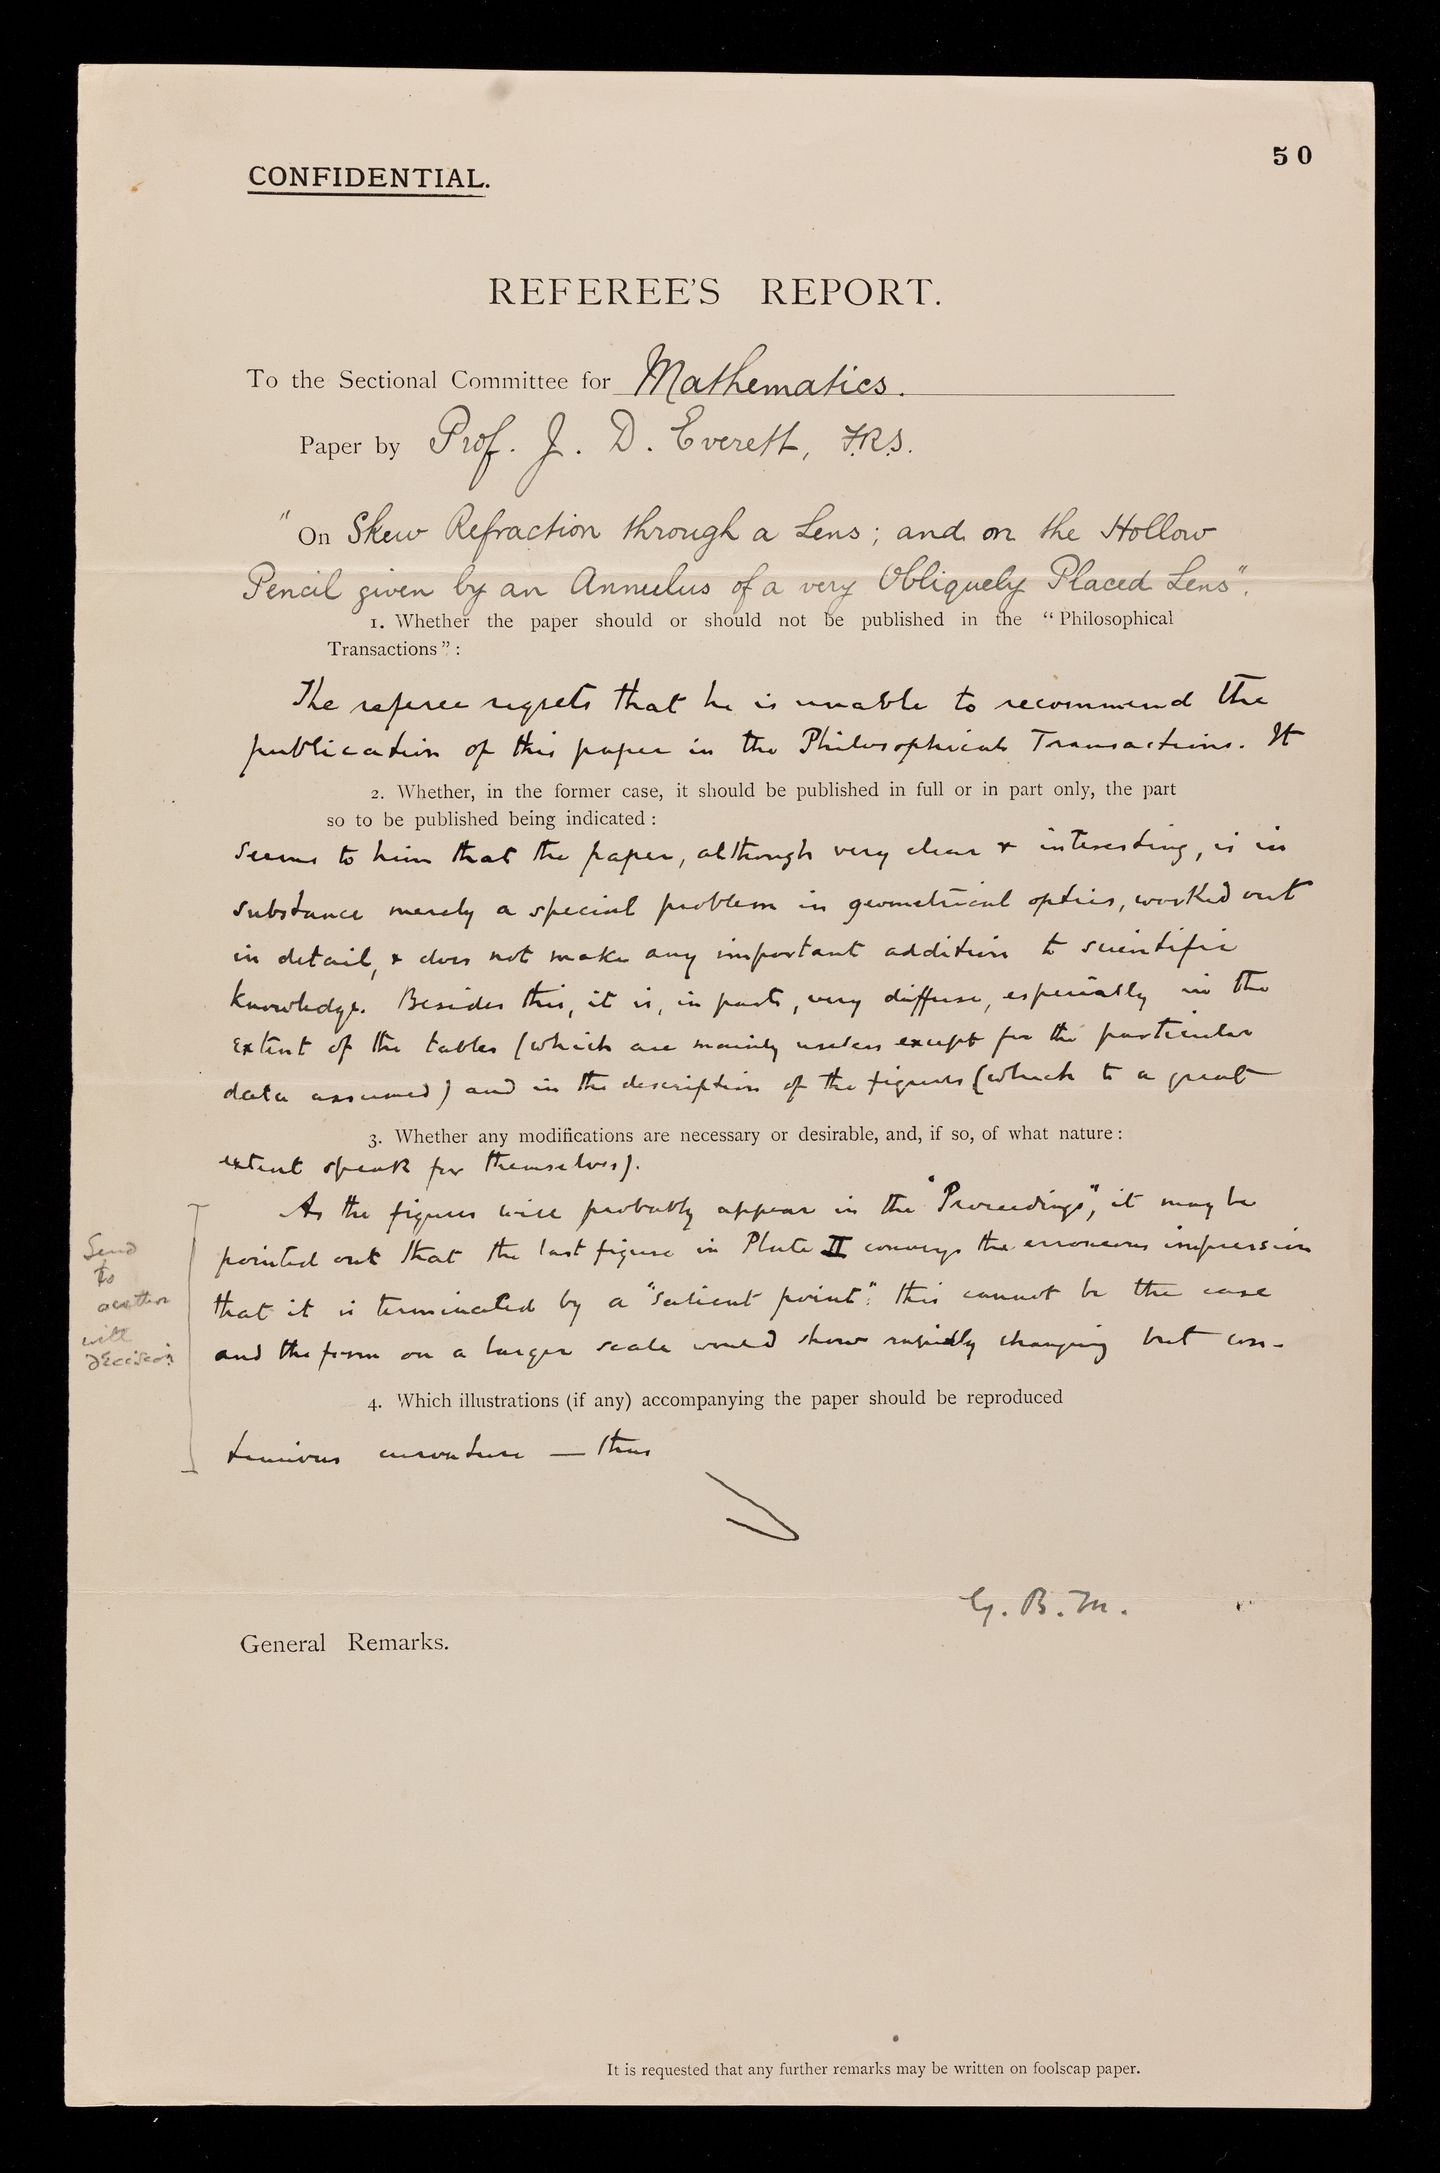 50
CONFIDENTIAL.
REFEREE'S REPORT.
To the Sectional Committee for Mathematics.
Paper by Prof. J. D. Everett, F.R.S.
"On Skew Refraction through a Lens; and on the Hollow
Pencil given by an Annulus of a very Obliquely Placed Lens".
1. Whether the paper should or should not be published in the "Philosophical
Transactions":
The referee regrets that he is unable to recommend the
publication of this paper in the Philosophical Transactions. It
2. Whether, in the former case, it should be published in full or in part only, the part
so to be published being indicated:
seems to him that the paper, although very clear & interesting, is in
substance merely a special problem in geometrical optics, worked out
in detail, & does not make any important addition to scientific
knowledge. Besides this, it is, in parts, very diffuse, especially in the
extent of the tables (which are mainly useless except for the particular
data assumed) and in the description of the figures (which to a great
3. Whether any modifications are necessary or desirable, and, if so, of what nature:
extent speak for themselves).
As the figures will probably appear in the "Proceedings", it may be
pointed out that the last figure in Plate II conveys the erroneous impression
that it is terminated by a "salient point": this cannot be the case
and the form on a larger scale would show rapidly changing but con-
Send
to
author
with
decision
4. Which illustrations (if any) accompanying the paper should be reproduced
tinuous curvature — thus
G. B. M.
General Remarks.
It is requested that any further remarks may be written on foolscap paper.